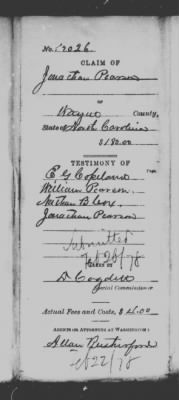 No. 12026
CLAIM OF
Jonathan Pearson
OF
Wayne County,
State of North Carolina
$180.00
TESTIMONY OF
E G Copeland
William Pearson
Nathan B Cox
Jonathan Pearson
Submitted
Feb 28/78
TAKEN BY
D Cogdell
Special Commissioner
Actual Fees and Costs, $
AGENTS OR ATTORNEYS AT WASHINGTON:
Allan Rutherford
Feb 22/78